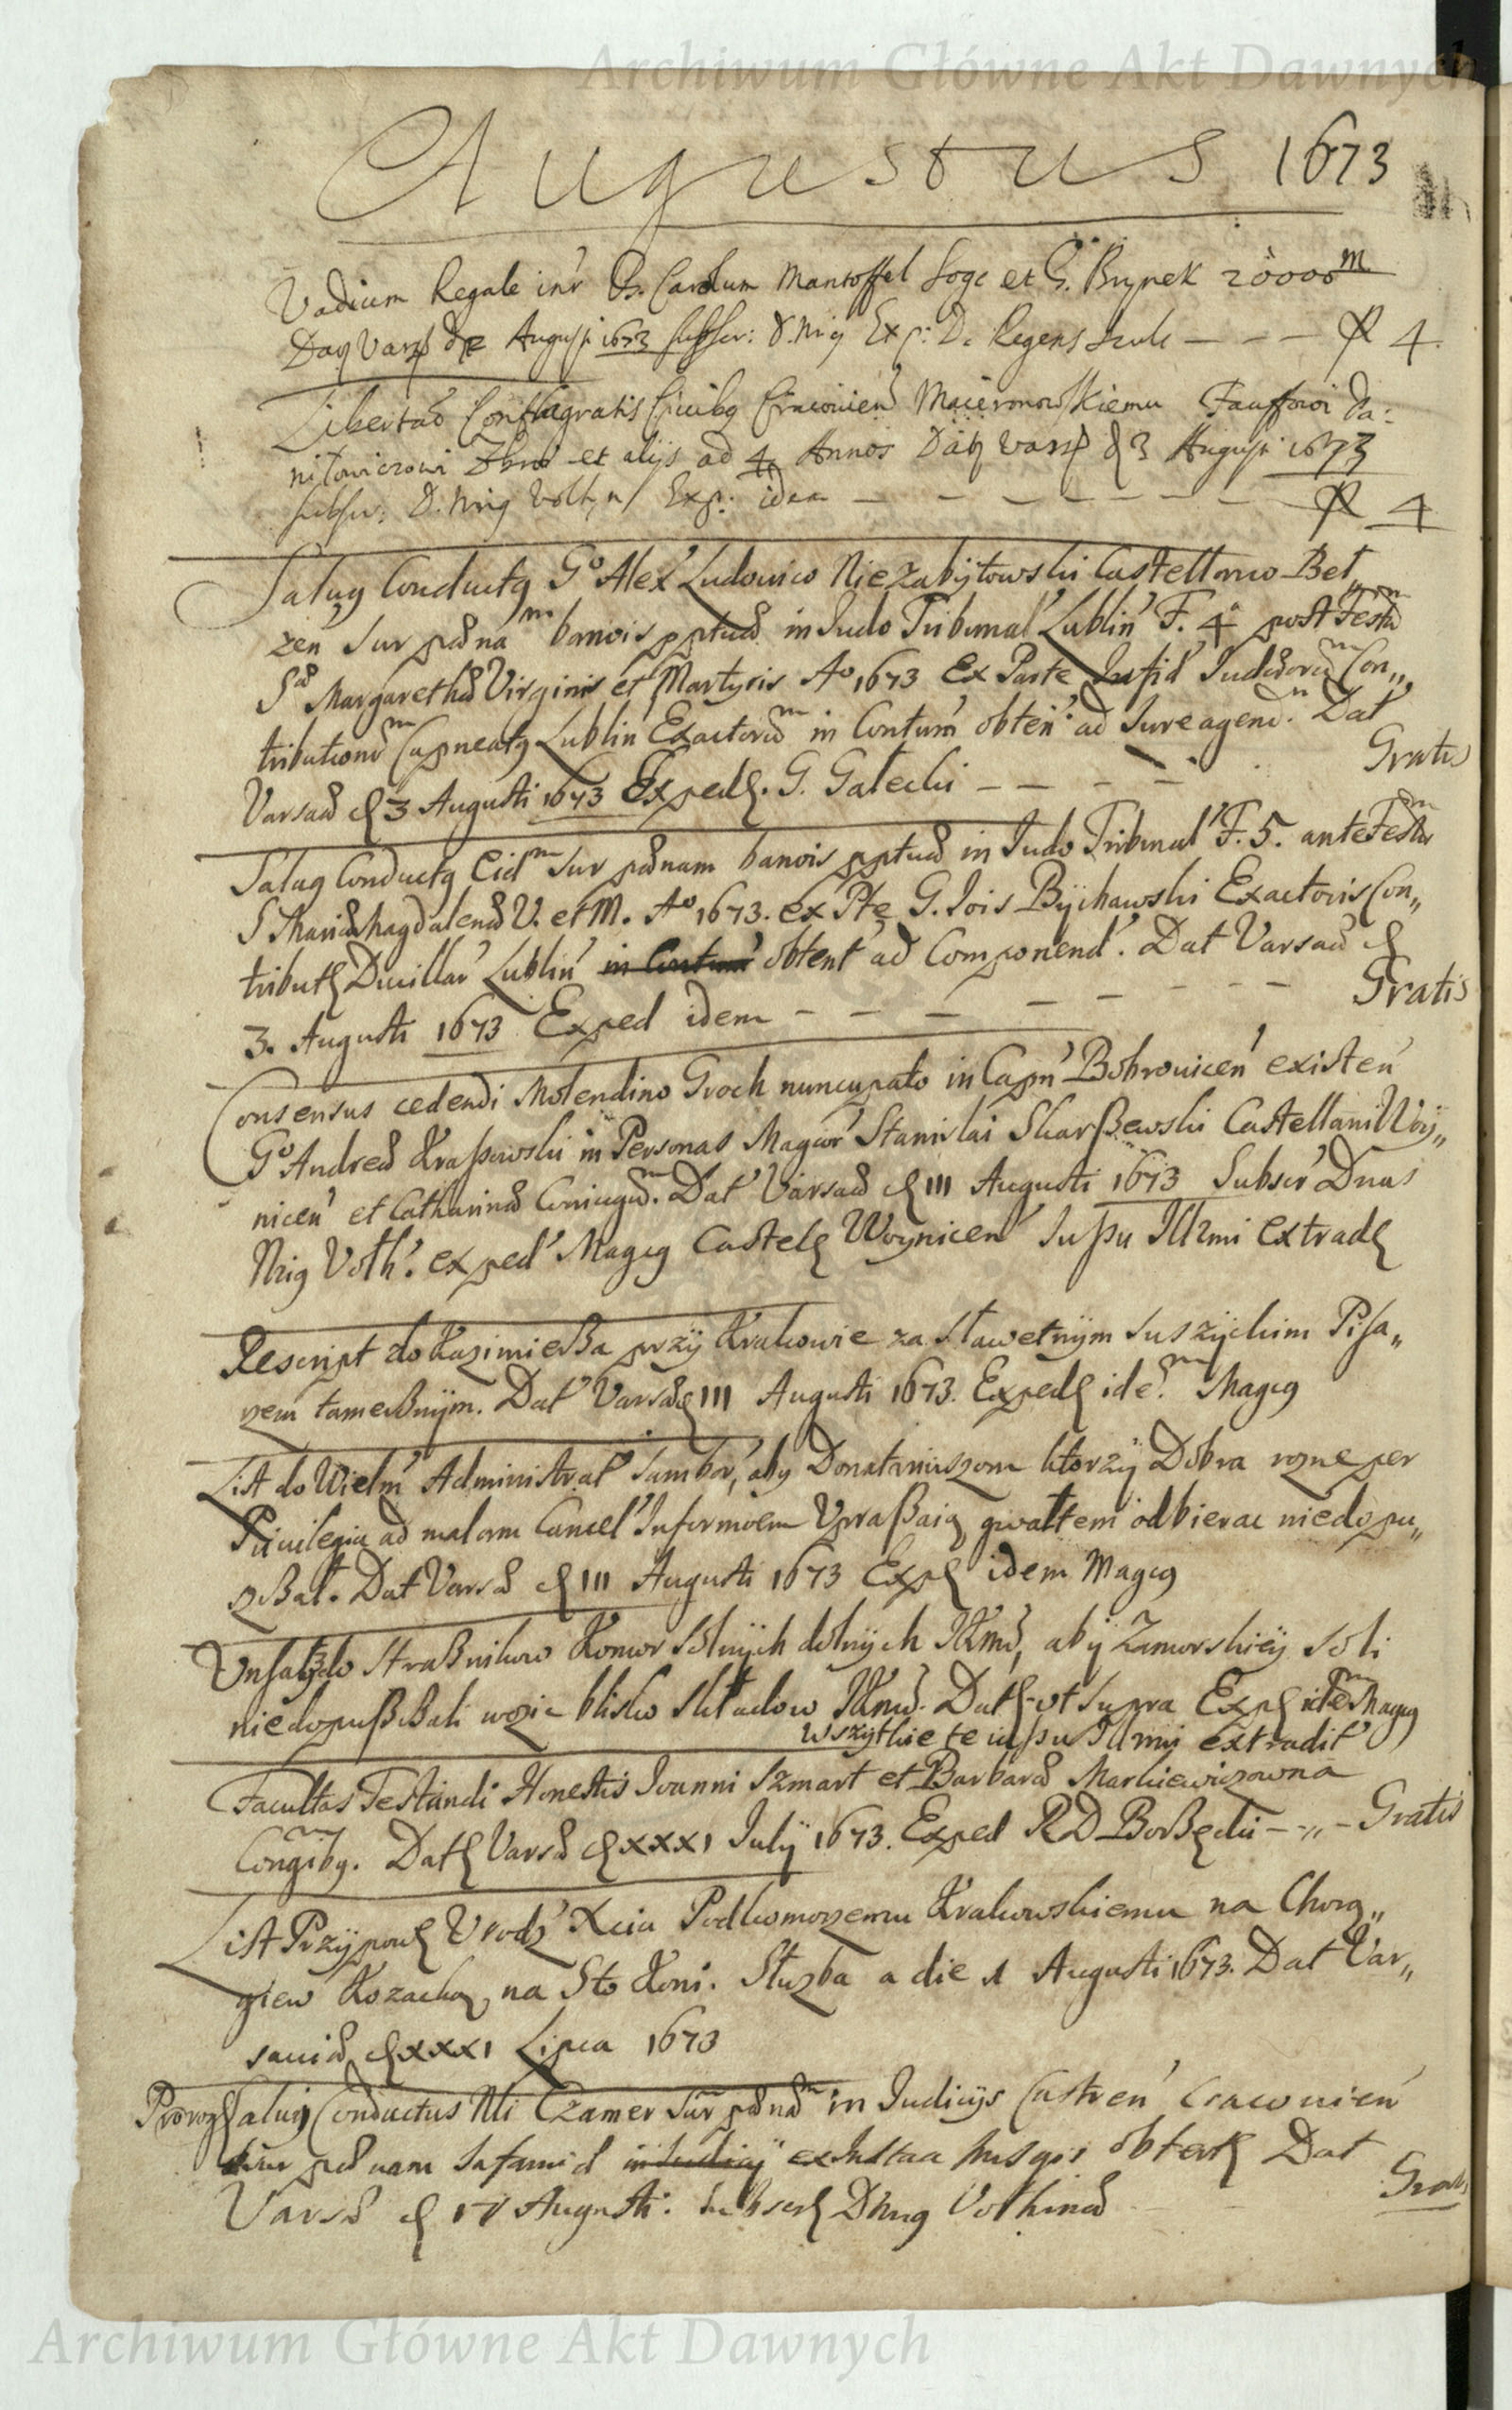 Archiwum Główne Akt Dawnych
Augustus 1673
Vadium Regale int'r G. Carolum Mantoffel Soge et G. Brynek 20000 m
Augusti 1673 subscr: Exp: D. Regens 4.
Libertao Conflagratis Civibq Cracovien Macieronowskiemu da:
niłowiczowi et alijs ad 4 Annos Datq Vars d 3 Augusti 1673
subscr. D. Nrig Volh Exp: idem — — — — — — — 4
Salvq Conductq Go Alex' Ludovico Niezabÿtowski Castellano Bel„
zen Sur pænam banois pptuæ in Judo Tribunal' Lublin' F. 4a post Festũ
Sæ Margarethæ Virginis et Martyris Ao 1673 Ex Parte Con„
tributionũ Capneatq Lublin Exactorũ in Contum obten' ad Jure agend. Dat
Varsaæ d 3 Augusti 1673 Exped. G. Gałecki — — — — Gratis
Salvq Conductq Eid m Sur pænam banois pptuæ in Judo Tribunal' F. 5. ante Festũ
S Mariæ Magdalenæ V. et M. Ao 1673. ex Pte G. Jois Bÿchawski Exactoris Con„
tribut Ducillar' Lublin' in Contum' obtent' ad Componend'. Dat Varsaæ d
3. Augusti 1673 Exped idem — — — — — — — Gratis
Consensus cedendi Molendino Groch nuncupato in Capn' Bobrovicen' existen'
Go Andreæ Kraszowski in Personas Magcor' Stanislai Skarßewski Castellani Woÿ„
nicen' et Catharinæ Coniugũ. Dat' Varsaæ d III Augusti 1673 Subscr' Dnus
Nrig Volh'. exped' Magcq Castel Woynicen' Jussu Illmi extrad
Rescript do Kazimierßa przÿ Krakowie za Sławetnÿm Suszÿckim Pisa„
rzem tamecßnÿm. Dat' Varsaæ d III Augusti 1673. Exped idem Magcq
List do Wielm' Administrat' Sambor', aby Donatariuszom ktorzÿ Dobra rozne per
Privilegia ad malam Cancel' Informoem Vpraßaią gwałtem odbierac niedopu„
szßał. Dat Varsæ d III Augusti 1673 Exp idem Magcq
do Straßnikow Komor Solnÿch dolnÿch JKmci, abÿ Zamorskiëÿ Soli
niedopußcßali wozic blisko Składow JKmci. Dat ut Supra Exp idem Magcq
wszÿtkie te iussu Illmi extradit'
Facultas Testandi Honestis Joanni Szmart et Barbaræ Markiewiczowna
Congibq. Dat Varsæ d XXXI Julÿ 1673. Exped RD Borßęcki — „ — Gratis
List Przÿpow Vrodz' Podkomorzemu Krakowskiemu na Chorą„
giew Kozacką na Sto Koni. Służba a die 1 Augusti 1673. Dat Var„
saviæ d XXXI Lipca 1673
Prorog Salvi Conductus Nli Czamer Sur pænæ in Judicijs Castren' Cracovien'
pænam Infamiæ obtent Dat
Varsæ d 17 Augusti. Subscr Dnus Volhinæ Gratis
Archiwum Główne Akt Dawnych